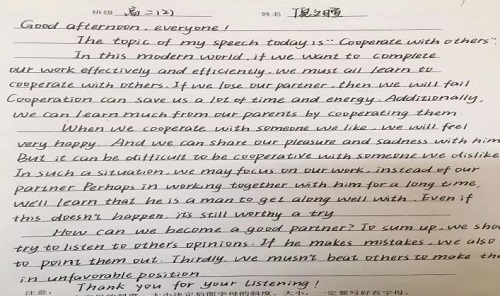 班级 高二(2) 姓名
Good afternoon, everyone!
The topic of my speech today is "Cooperate with others".
In this modern world, if we want to complete
our work effectively and efficiently, we must all learn to
cooperate with others. If we lose our partner, then we will fail
Cooperation can save us a lot of time and energy. Additionally,
we can learn much from our parents by cooperating them
When we cooperate with someone we like, we will feel
very happy. And we can share our pleasure and sadness with him
But it can be difficult to be cooperative with someone we dislike
In such a situation, we may focus on our work, instead of our
partner Perhaps in working together with him for a long time,
we'll learn that he is a man to get along well with. Even if
this doesn't happen, it's still worthy a try
How can we become a good partner? To sum up, we shou
try to listen to others opinions. If he makes mistakes, we also
to point them out. Thirdly, we musn't beat others to make the
in unfavorable position
Thank you for your listening!